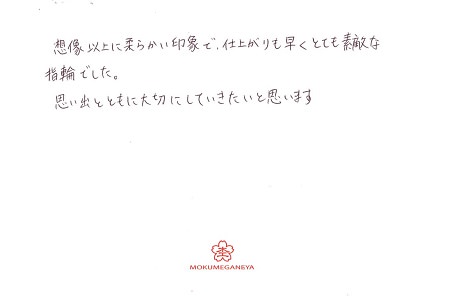 想像以上に柔らかい印象で、仕上がりも早くとても素敵な
指輪でした。
思い出とともに大切にしていきたいと思います
MOKUMEGANEYA